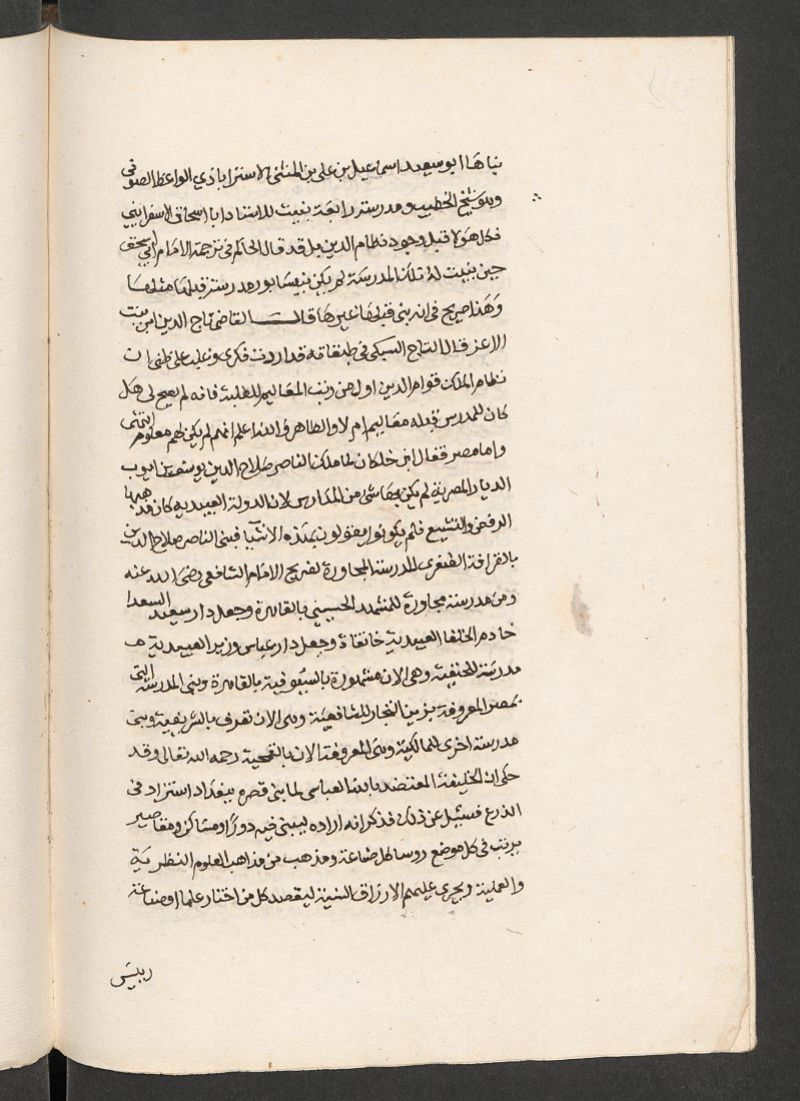 بناها ابو سعيد اسماعيل بن علي بن المثنى الاستراباذي الواعظ الصوفي
وهو شيخ الخطيب ومدرسة رابعة بنيت للاستاد ابا اسحاق الاسفرايني
فكل هولا قبل وجود نظام الدين بل قد قال الحاكم في ترجمة الامام ابي اسحق
حين بنيت له تلك المدرسة لم يكن بنيسابور مدرسة قبلها مثلها
وهذا صريح في انه بنى قبلها غيرها قال القاضي تاج الدين ابن بنت
الاعز قال التاج السبكي في طبقاته قد اردت فكري وغلب على ظني ان
نظام الملك قوام الدين اول من رتب المعاليم للطلبة فانه لم يصح لي هل
كان للمدرس قبله معاليم ام لا والظاهر والله اعلم انهم لم يكن لهم معلوم انتهى
واما مصر فقال ابن خلكان لما ملك الناصر صلاح الدين يوسف بن ايوب
الديار المصرية لم يكن بها شئ من المدارس لان الدولة العبيدية كان مذهبها
الرفض والتشيع فلم يكونوا يقولون بهذه الاشيا فبنى الناصر صلاح الدين
بالقرافة الصغرى المدرسة المجاورة لضريح الامام الشافعي رضى الله عنه
ومن مدرسة مجاورة للمشهد الحسيني بالقاهرة وجعل دار سعيد السعدا
خادم الخلفا العبيدية خانقاة وجعل دار عباس وزير العبيدية
مدرسة للحنفية وهى الان مشهورة بالسيوفية بالقاهرة وبنى المدرسة التى
بمصر المعروفة بزين النجار للشافعية وهى الان تعرف بالشريفية وبنى
مدرسة اخرى للمالكية وهى المعروفة الان بالقمحية رحمه الله تعالى وقد
حكى ان الخليفة المعتضد بالله العباسى لما بنى قصره ببغداد استزاد فى
الذرع فسئل عن ذلك فذكر انه اراده ليبنى فيه دورا ومساكن ومقاصير
يرتب فى كل موضع روسا كل صناعة ومذهب من مذاهب العلوم النظرية
والعملية ويجرى عليهم الارزاق السنية ليقصد كل من اختار علما او صناعة
رييس